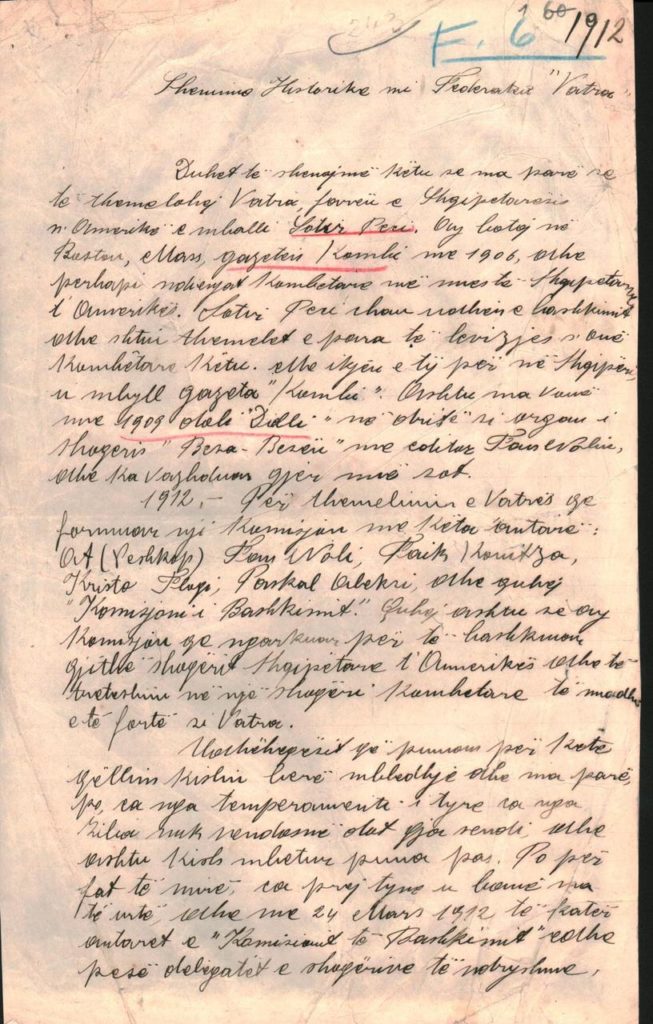 243
F. 6 60/1912
Shenime Historike mi Federaten "Vatra"
Duhet të shenojmë këtu se ma parë se
të themelohej Vatra, farën e Shqipëtarësis
n'Amerikë e mballi Sotir Peci. Ay botoj në
Boston, Mass, gazetën Kombi me 1906, dhe
perhapi ndienjat Kombëtare më mest Shqipetarve
t'Amerikës. Sotir Peci çhau udhën e bashkimit
dhe shtiu themelet e para të levizjes s'onë
kombëtare këtu. Me ikjen e ty për në Shqipëri,
u mbyll gazeta "Kombi". Ashtu ma vonë
me 1909 doli "Dielli" në dritë si organ i
shoqeris "Besa-Besën" me editor Fan Nolin,
dhe ka vazhduar gjer më sot.
1912, - Për themelimin e Vatrës qe
formuar një Komisjon me këta antarë:
At (Peshkop) Fan Noli, Faik Konitza,
Kristo Floqi, Paskal Aleksi, dhe quhej
"Komisjoni i Bashkimit." Quhej ashtu se ay
Komisjon qe ngarkuar për të bashkuar
gjithë shoqerit Shqipëtare t'Amerikës dhe të
treteshin në një shoqëri kombëtare të madhe
e të fortë si Vatra.
Udhëheqësit që punuan për këtë
qëllim kishin berë mbledhje dhe ma parë,
po, ca nga temperamenti i tyre ca nga
zilia nuk vendosnë dot gja sendi, dhe
ashtu kish mbetur puna pas. Po për
fat të mirë, ca prej tyne u banë ma
të urtë, dhe me 24 Mars 1912 të katër
antaret e "Komisionit të Bashkimit" edhe
pesë delegatët e shoqërive të ndryshme,